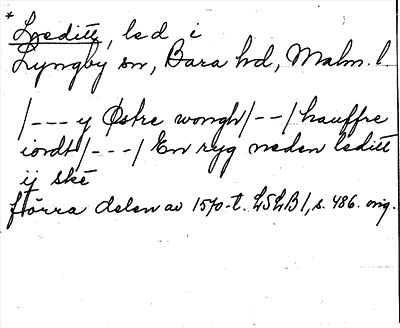 * Leditt, led i
Lyngby sn, Bara hd, Malm. l
/--- y Østre wongh/--/ hauffre
iordt/---/ En ryg neden leditt
ij ske
förra delen av 1570-t. LSLB 1, s. 486. orig.